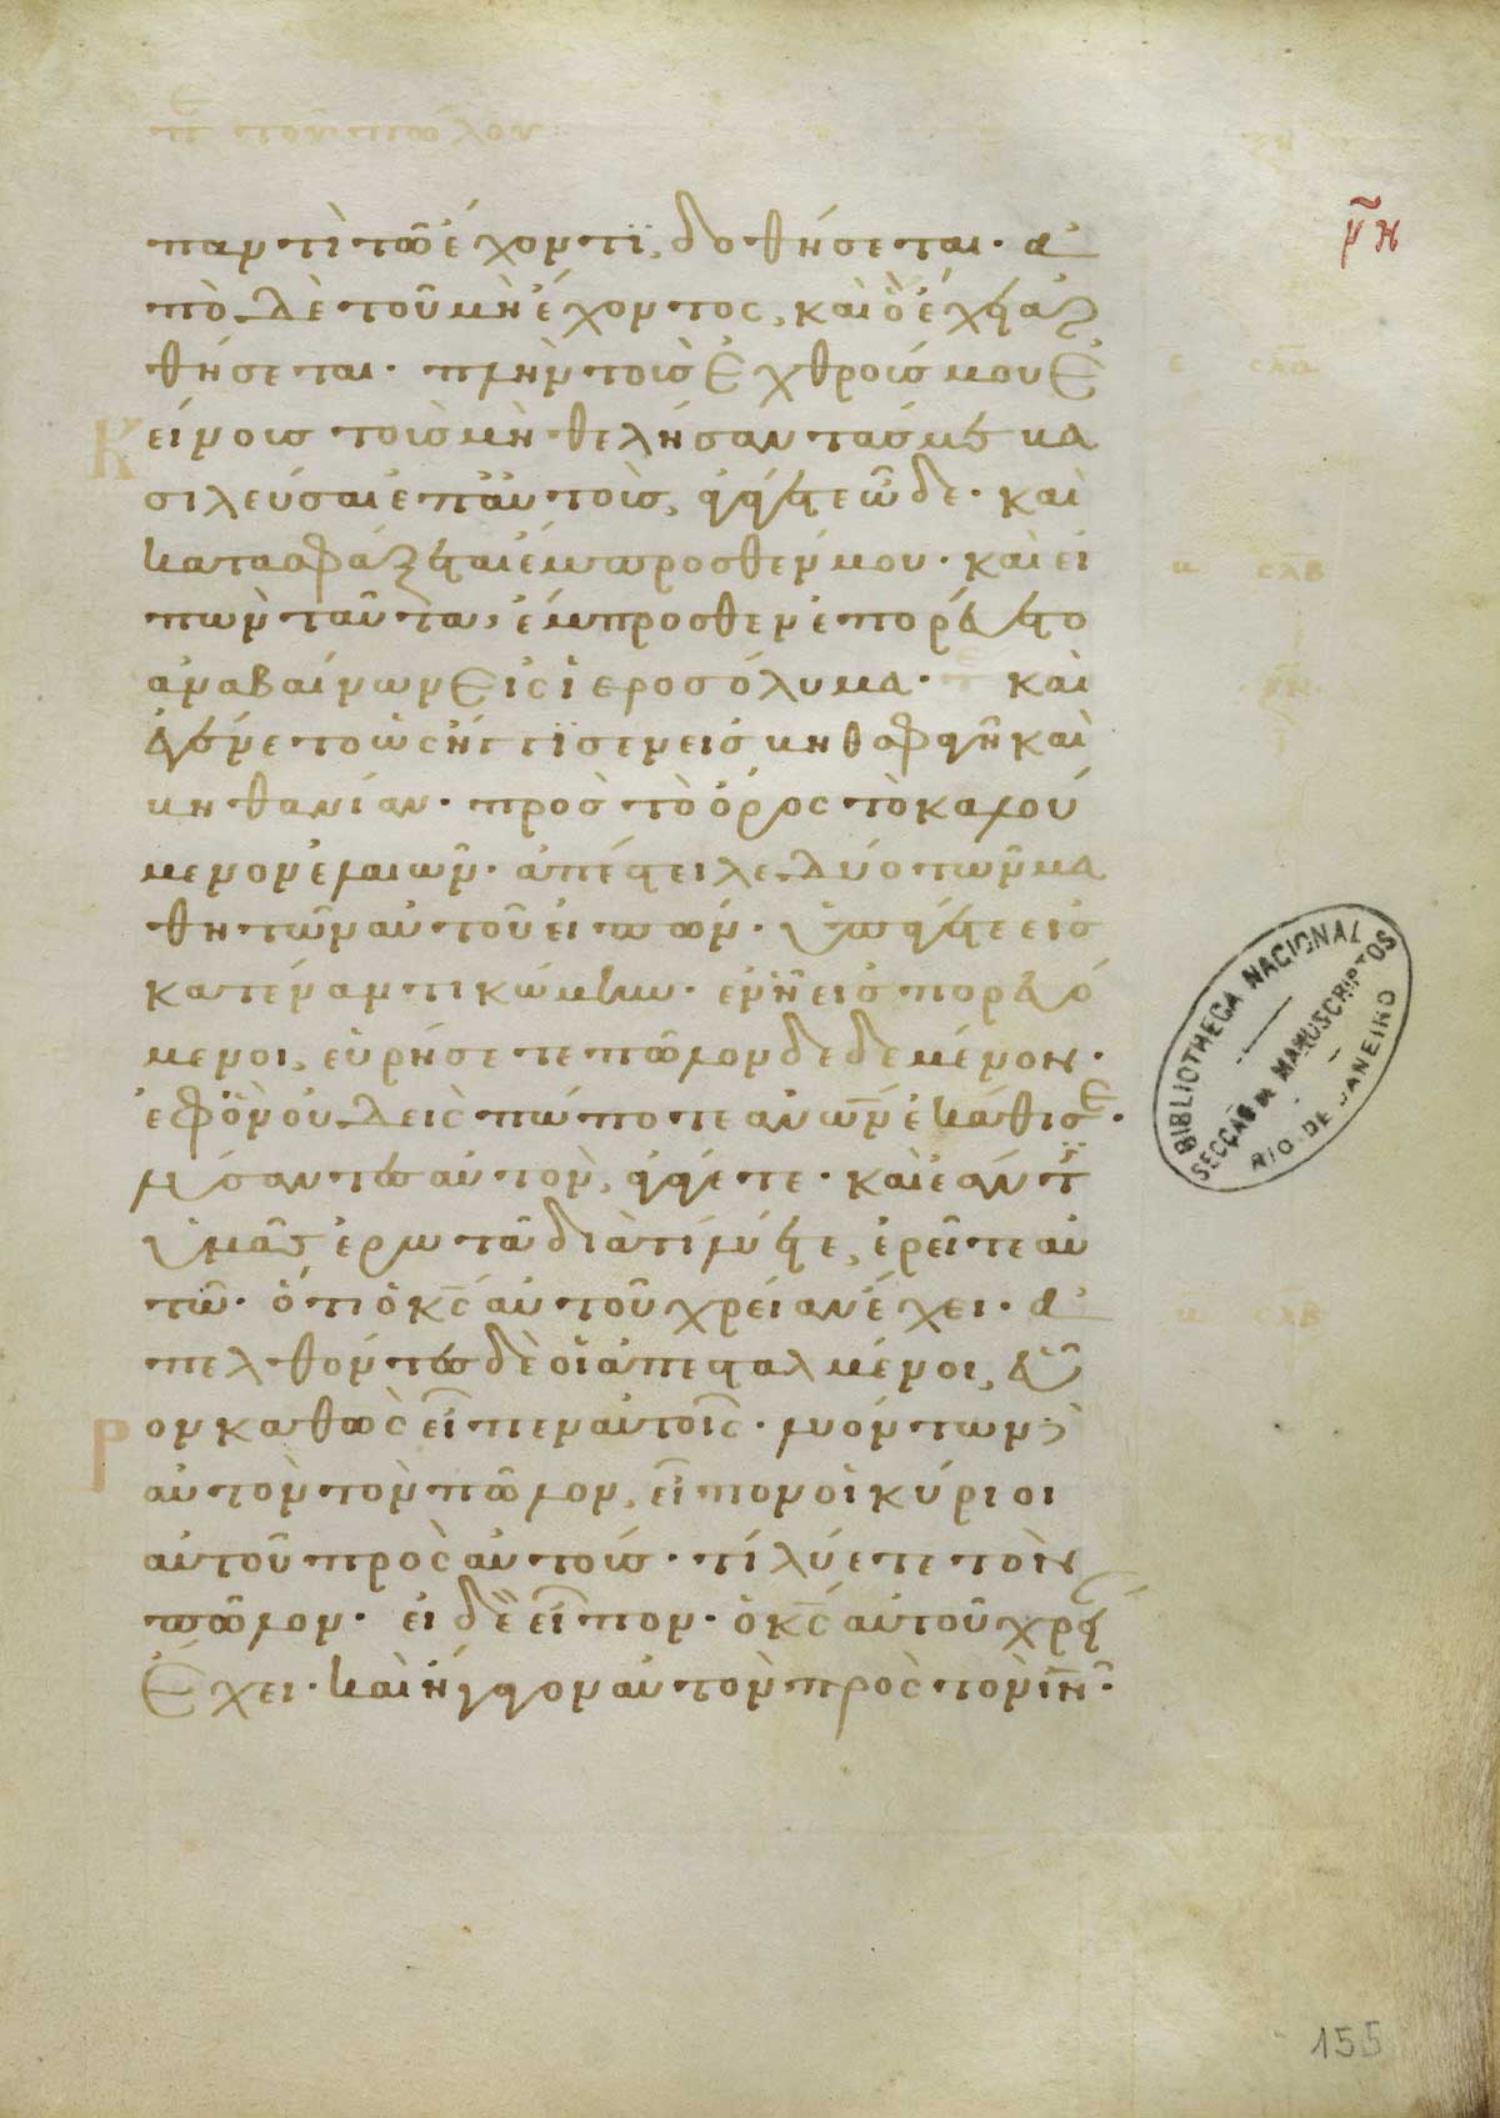 π̅ε̅ τοῦ πώλου
μ̃η
παντὶ τῶ ἔχοντϊ, δοθήσεται· ἀ
πὸ δὲ τοῦ μὴ ἔχοντος, καὶ ὃ ἔχει ἀρ
θήσεται· πλὴν τοὺς ἐχθρούς μου ἐ
κείνους τοὺς μὴ θελήσαντάς με βα
σιλεύσαι ἐπ' αὐτοὺς, ἀγάγετε ὧδε· καὶ
κατασφάξεται ἔμπροσθέν μου· καὶ εἰ
πὼν ταῦτα, ἔμπροσθεν ἐπορεύετο
ἀναβαίνων εἰς ἱεροσόλυμα· καὶ
ἐγένετο ὡς ἤγγϊσεν εἰς βηθσφαγῆ καὶ
βηθανίαν· πρὸς τὸ ὄρος τὸ καλού
μενον ἐλαιῶν· ἀπέστειλε δύο τῶν μα
θητῶν αὐτοῦ εἰπών· ὑπάγετε εἰς
κατέναντι κώμην· ἐν ἧ εἰσπορευό
μενοι, εὑρήσετε πῶλον δεδεμένον·
ἐφ' ὃν οὐδεὶς πώποτε ἀν̅ω̅ν ἐκάθισε·
λύσαντες αὐτὸν, ἀγάγετε· καὶ ἐάν τϊς
ὑμᾶς ἐρωτᾶ διατί λύετε, ἐρεῖτε αὐ
τῶ· ὅτι ὁ κ̅ς̅ αὐτοῦ χρείαν ἔχει· ἀ
πελθόντες δὲ οἱ ἀπεσταλμένοι, εὗ
ρον καθὼς εἶπεν αὐτοῖς· λυόντων δὲ
αὐτὸν τὸν πῶλον, εἶπον οἱ κύριοι
αὐτοῦ πρὸς αὐτούς· τί λύετε τὸν
πῶλον· οἱ δὲ εἶπον· ὁ κ̅ς̅ αὐτοῦ χρεί
ἔχει· καὶ ἤγαγον αὐτὸν πρὸς τὸν ι̅ν̅·
BIBLIOTHECA NACIONAL
SECÇÃO DE MANUSCRIPTOS
RIO DE JANEIRO
155